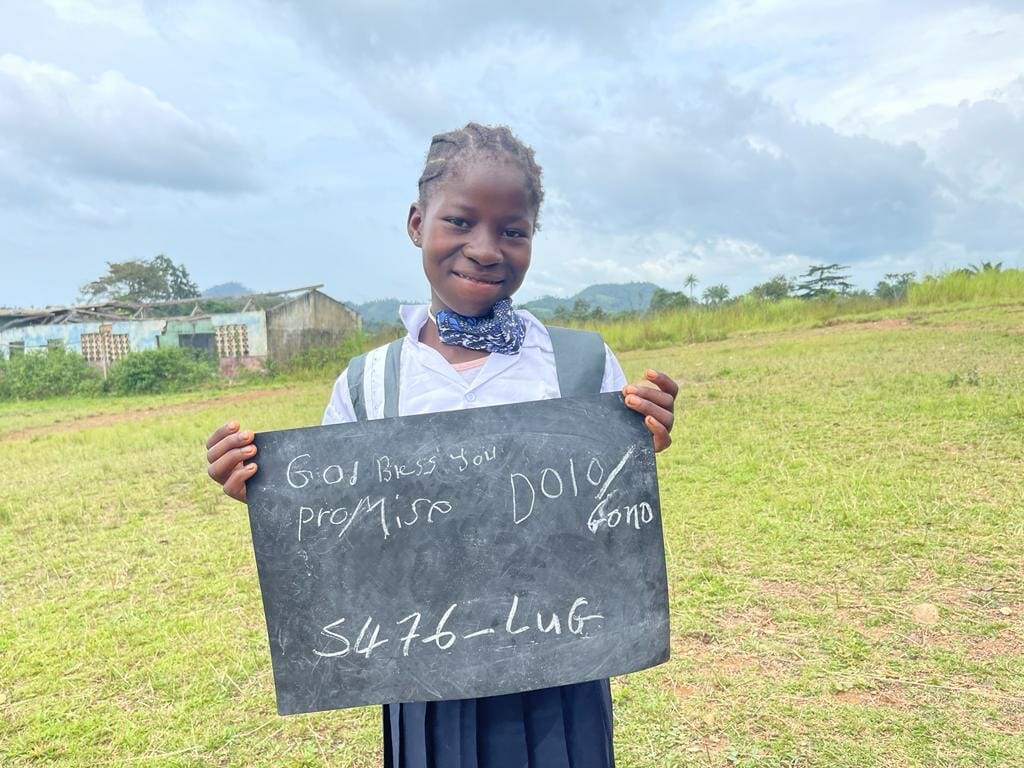 God Bless You
promise DOlO/
Gono
S476-LUG